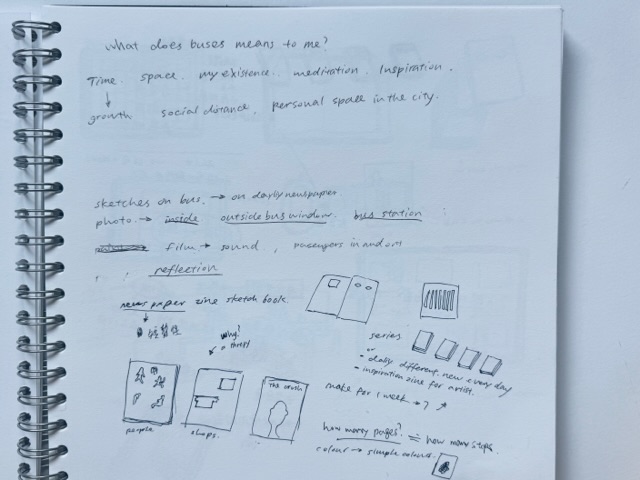 what does buses means to me?
Time. space. my existence. meditation. Inspiration.
growth social distance, personal space in the city.
sketches on bus. → on daily newspaper
photo. → inside outside bus window. bus station
film → sound, passengers in and on
reflection
newspaper zine sketch book.
why?
series
or
- daily different, new every day
- inspiration zine for artist.
make for 1 week → 7
The truth
people
shops.
how many pages? = how many stops.
colour → simple colours.